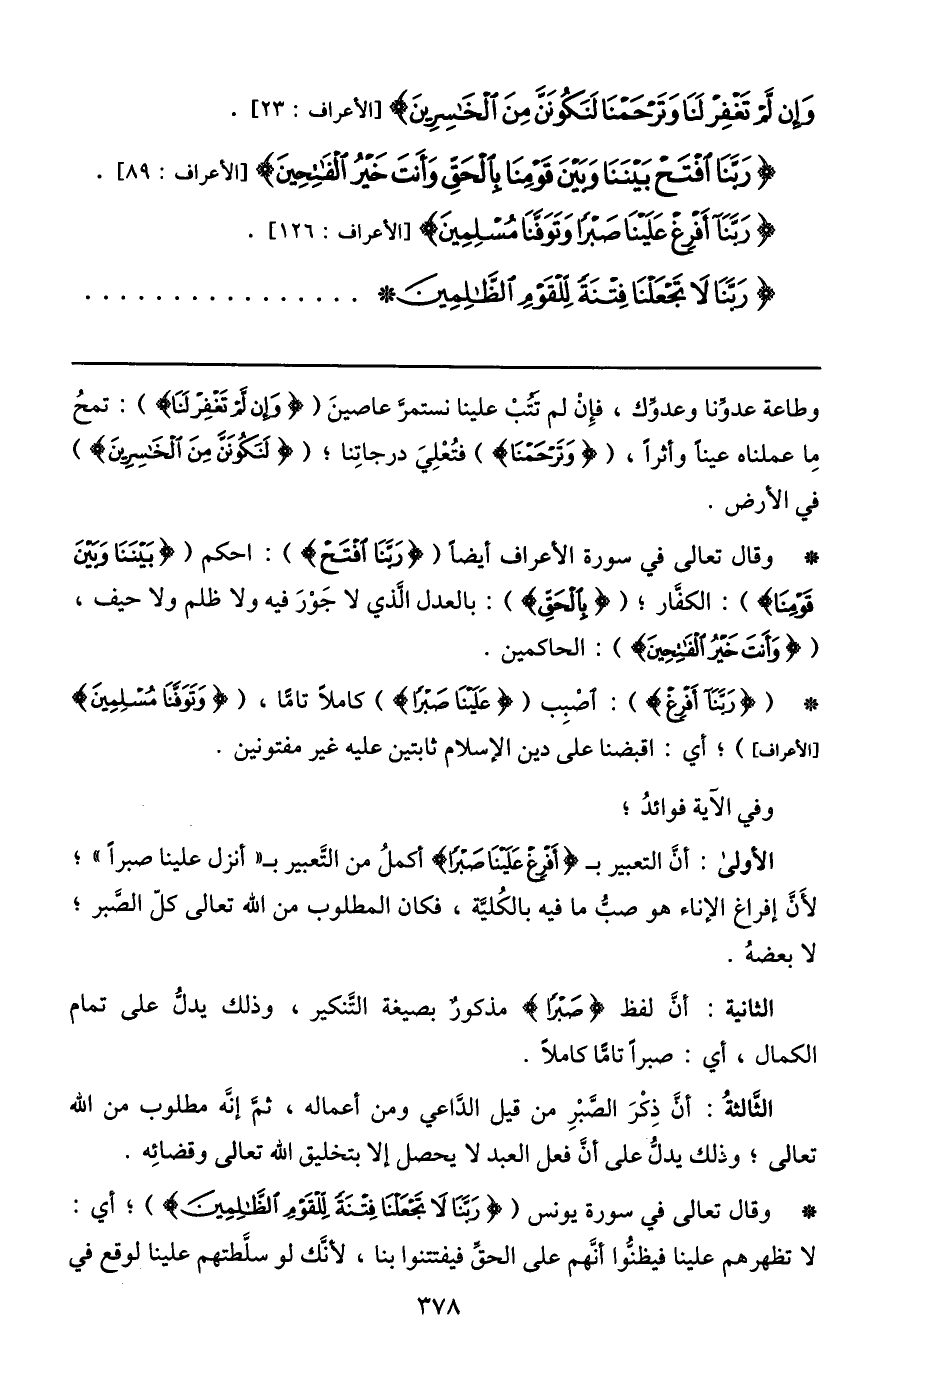 وَإِن لَّمْ تَغْفِرْ لَنَا وَتَرْحَمْنَا لَنَكُونَنَّ مِنَ ٱلْخَٰسِرِينَ﴾ [الأعراف : ٢٣] .
﴿ رَبَّنَا ٱفْتَحْ بَيْنَنَا وَبَيْنَ قَوْمِنَا بِٱلْحَقِّ وَأَنتَ خَيْرُ ٱلْفَٰتِحِينَ﴾ [الأعراف : ٨٩] .
﴿ رَبَّنَآ أَفْرِغْ عَلَيْنَا صَبْرًا وَتَوَفَّنَا مُسْلِمِينَ﴾ [الأعراف : ١٢٦] .
﴿ رَبَّنَا لَا تَجْعَلْنَا فِتْنَةً لِّلْقَوْمِ ٱلظَّٰلِمِينَ * . . . . . . . . . . . . . . . .
وطاعة عدوِّنا وعدوِّك ، فإِنْ لم تَتُبْ علينا نستمرَّ عاصينَ ( ﴿ وَإِن لَّمْ تَغْفِرْ لَنَا﴾ ) : تمحُ
مِا عملناه عيناً وأثراً ، ( ﴿ وَتَرْحَمْنَا﴾ ) فتُعْلِيَ درجاتِنا ؛ ( ﴿ لَنَكُونَنَّ مِنَ ٱلْخَٰسِرِينَ﴾ )
في الأرض .
* وقال تعالى في سورة الأعراف أيضاً ( ﴿رَبَّنَا ٱفْتَحْ﴾ ) : احكم ( ﴿بَيْنَنَا وَبَيْنَ
قَوْمِنَا﴾ ) : الكفَّار ؛ ( ﴿ بِٱلْحَقِّ﴾ ) : بالعدل الَّذي لا جَوْرَ فيه ولا ظلم ولا حيف ،
( ﴿ وَأَنتَ خَيْرُ ٱلْفَٰتِحِينَ﴾ ) : الحاكمين .
* ( ﴿رَبَّنَآ أَفْرِغْ﴾ ) : ٱصْبِب ( ﴿ عَلَيْنَا صَبْرًا﴾ ) كاملاً تامًّا ، ( ﴿ وَتَوَفَّنَا مُسْلِمِينَ﴾
[الأعراف] ) ؛ أي : اقبضنا على دين الإسلام ثابتين عليه غير مفتونين .
وفي الآية فوائدُ ؛
الأولىٰ : أنَّ التعبير بـ ﴿أَفْرِغْ عَلَيْنَا صَبْرًا﴾ أكملُ من التَّعبير بـ« أنزل علينا صبراً » ؛
لأَنَّ إفراغ الإناء هو صبُّ ما فيه بالكُليَّة ، فكان المطلوب من الله تعالى كلّ الصَّبر ؛
لا بعضهُ .
الثانية : أنَّ لفظ ﴿صَبْرًا﴾ مذكورٌ بصيغة التَّنكير ، وذلك يدلُّ على تمام
الكمال ، أي : صبراً تامًّا كاملاً .
الثَّالثةُ : أنَّ ذِكْرَ الصَّبْرِ من قيل الدَّاعي ومن أعماله ، ثمَّ إنَّه مطلوب من الله
تعالى ؛ وذلك يدلُّ على أنَّ فعل العبد لا يحصل إلا بتخليق الله تعالى وقضائِه .
* وقال تعالى في سورة يونس ( ﴿ رَبَّنَا لَا تَجْعَلْنَا فِتْنَةً لِّلْقَوْمِ ٱلظَّٰلِمِينَ﴾ ) ؛ أي :
لا تظهرهم علينا فيظنُّوا أنَّهم على الحقِّ فيفتتنوا بنا ، لأنَّك لو سلَّطتهم علينا لوقع في
٣٧٨